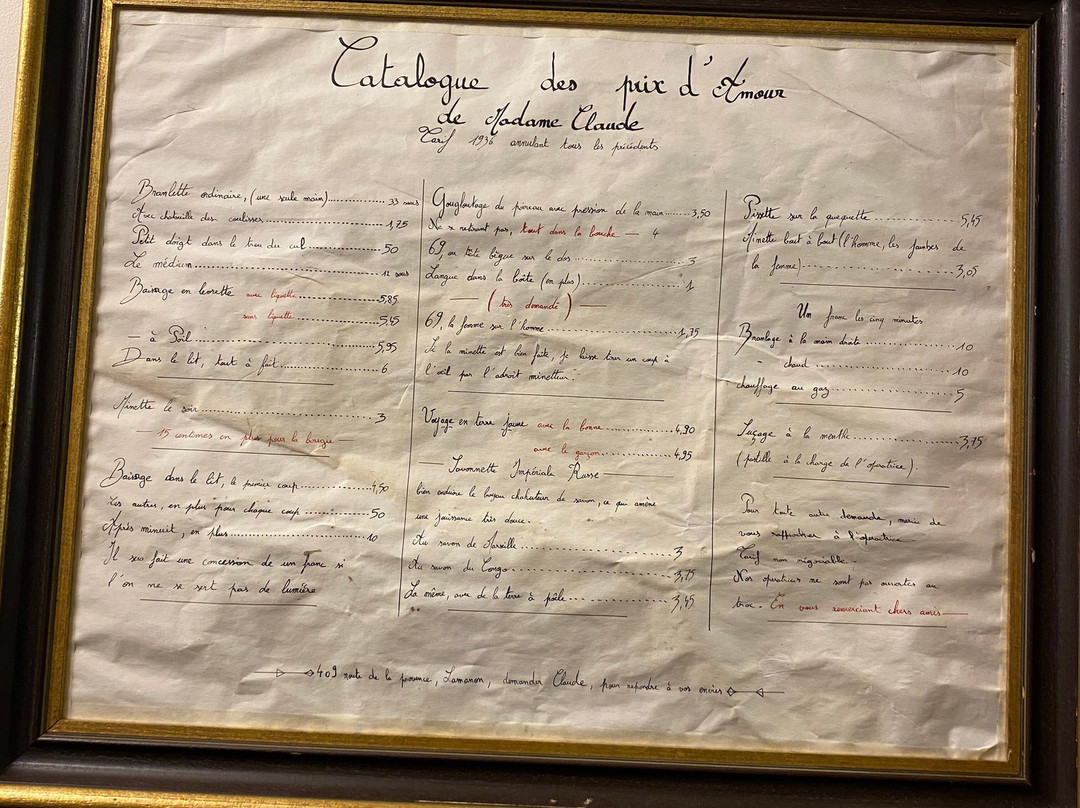 Catalogue des prix d'Amour
de Madame Claude
Tarif 1936 annulant tous les précédents
Branlette ordinaire, (une seule main)............ 33 sous
Avec chatouille des coulisses............ 1,75
Petit doigt dans le trou du cul............50
Le médium............12 sous
Baisage en levrette avec liquette............5,85
sans liquette............5,45
— à Poil............5,95
Dans le lit, tout à fait............6
Minette le soir............3
— 15 centimes en plus pour la bougie —
Baisage dans le lit, le premier coup............4,50
Les autres, en plus pour chaque coup............50
Après minuit, en plus............10
Il sera fait une concession de un franc si
l'on ne se sert pas de lumière
Gougloutage du poireau avec pression de la main........3,50
Ne se retirant pas, tout dans la bouche — 4
69, ou tête bêgue sur le dos............3
Langue dans la boîte (en plus)............1
— (très demandé) —
69, la femme sur l'homme............1,75
Si la minette est bien faite, je laisse tirer un coup à
l'œil par l'adroit minetteur.
Voyage en terre jaune avec la bonne............4,90
avec le garçon............4,95
— Savonnette Impériale Russe —
bien enduire le boyau chatouteur de savon, ce qui amène
une jouissance très douce.
Au savon de Marseille............3
Au savon du Congo............3,75
La même, avec de la terre à poêle............3,45
Pissette sur la quequette............5,45
Minette bout à bout (l'homme, les jambes de
la femme)............3,05
Un franc les cinq minutes
Branlage à la main droite............10
- chaud............10
chauffage au gaz............5
Suçage à la menthe............3,75
(pastille à la charge de l'operatrice).
Pour toute autre demande, merci de
vous à l'operatrice
Tarif non négociable.
Nos operatrices ne sont pas ouvertes au
troc. En vous remerciant chers amis —
409 route de la provence, Lamanon, demander Claude, pour repondre à vos envies